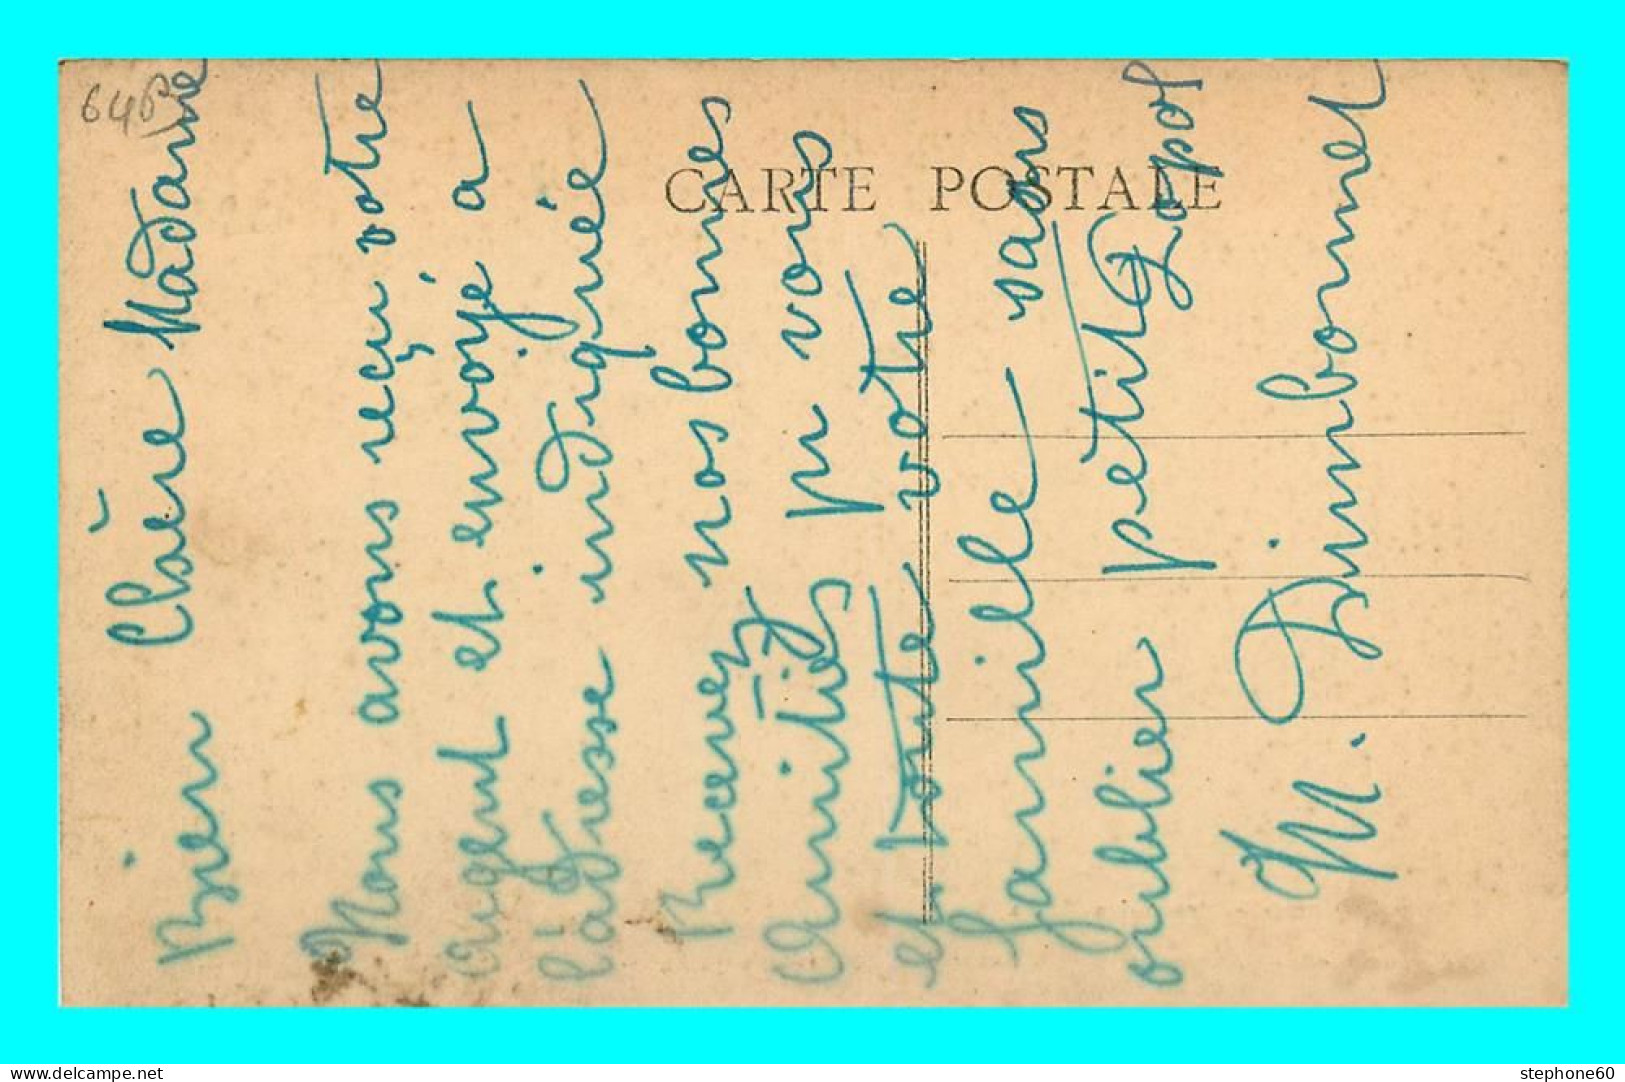 64P
CARTE POSTALE
Bien Chère Madame
Nous avons reçu votre
argent et envoyé a
l'adresse indiquée
Recevez nos bonnes
Amitiés pr vous
et toute votre
famille sans
oublier petit Zopol
M. Dimbonnet
delcampe.net
stephone60